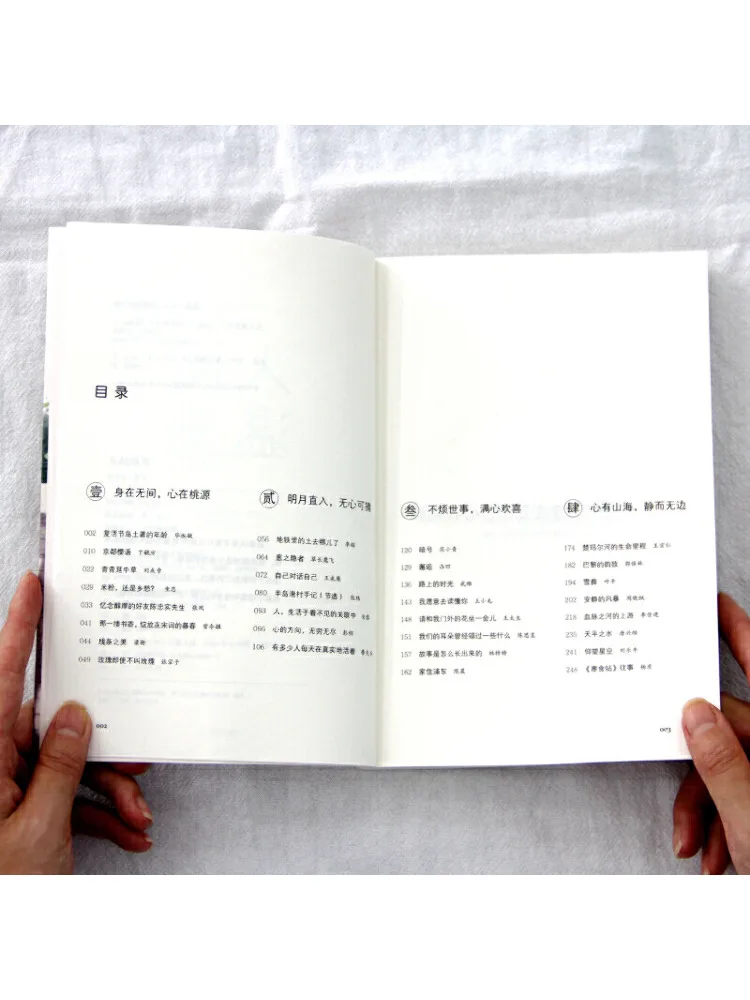 目录
壹 身在无间，心在桃源
002 复活节岛土著的年龄
010 京都樱通
022 青青莛牛草
029 米粉，还是乡愁？
033 忆念醇厚的好友陈忠实先生
041 那一缕书香，绽放在宋词的暮春
044 线条之美
049 玫瑰即使不叫玫瑰
贰 明月直入，无心可猜
056 地铁里的土去哪儿了
064 恶之隐者
072 自己对话自己
080 半岛渔村手记（节选）
093 人，生活于看不见的关联中
095 心的方向，无穷无尽
106 有多少人每天在真实地活着
002
叁 不烦世事，满心欢喜
120 暗号
129 邂逅
136 路上的时光
143 我愿意去读懂你
148 请和我门外的花坐一会儿
151 我们的耳朵曾经错过一些什么
157 故事是怎么长出来的
162 家住浦东
肆 心有山海，静而无边
174 楚玛尔河的生命里程
182 巴黎的韵致
194 雪薇 叶平
202 安静的风暴
218 血脉之河的上游
235 天平之水
241 仰望星空
248 《寒食帖》往事
003